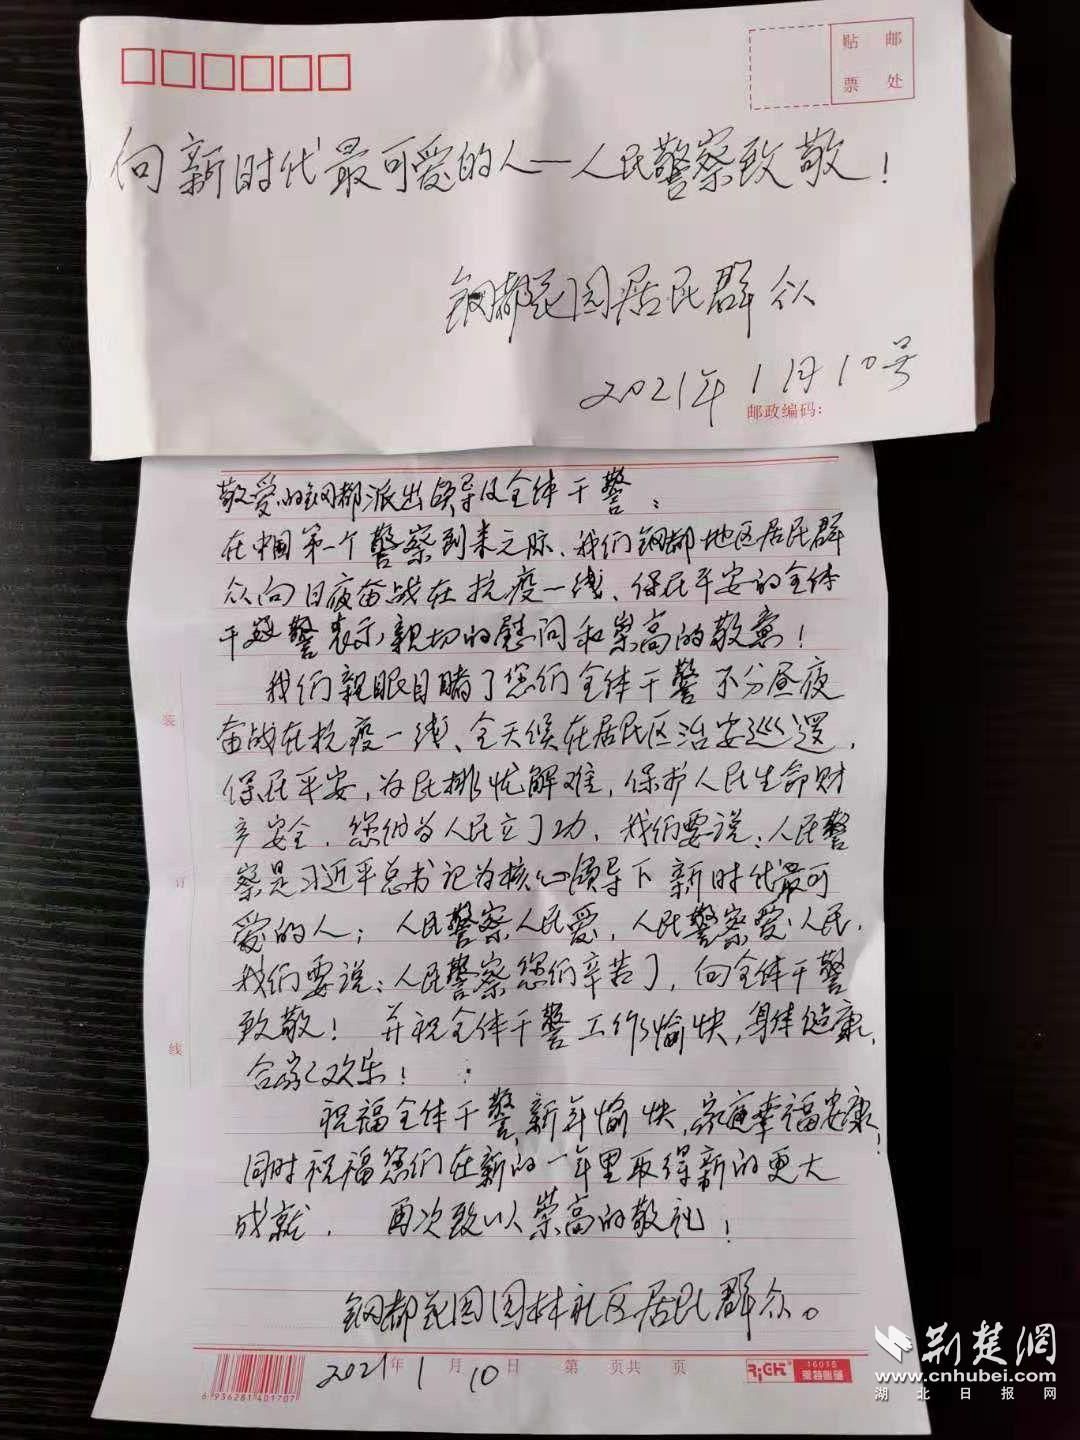 贴 邮
票 处
向新时代最可爱的人——人民警察致敬！
钢都花园居民群众
2021年1月10号
邮政编码：
敬爱的钢都派出领导及全体干警：
在中国第一个警察到来之际、我们钢都地区居民群
众向日夜奋战在抗疫一线、保民平安的全体
干警表示亲切的慰问和崇高的敬意！
我们亲眼目睹了您们全体干警不分昼夜
奋战在抗疫一线、全天候在居民区治安巡逻，
保民平安，为民排忧解难，保护人民生命财
产安全，您们为人民立了功，我们要说：人民警
察是习近平总书记为核心领导下新时代最可
爱的人；人民警察人民爱，人民警察爱人民，
我们要说：人民警察您们辛苦了，向全体干警
致敬！并祝全体干警工作愉快，身体健康，
合家欢乐！
祝福全体干警新年愉快，家庭幸福安康！
同时祝福您们在新的一年里取得新的更大
成就，再次致以崇高的敬礼！
钢都花园园林社区居民群众。
2021年1月10日 第 页共 页
装
订
线
6 936281 401707
RiCH 16015
莱特
荆楚网
www.cnhubei.com
湖北日报网